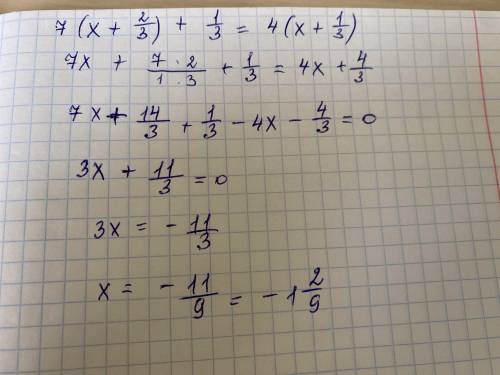 7 (x + 2/3) + 1/3 = 4 (x + 1/3)
7x + (7 · 2)/(1 · 3) + 1/3 = 4x + 4/3
7x + 14/3 + 1/3 - 4x - 4/3 = 0
3x + 11/3 = 0
3x = - 11/3
x = - 11/9 = - 1 2/9